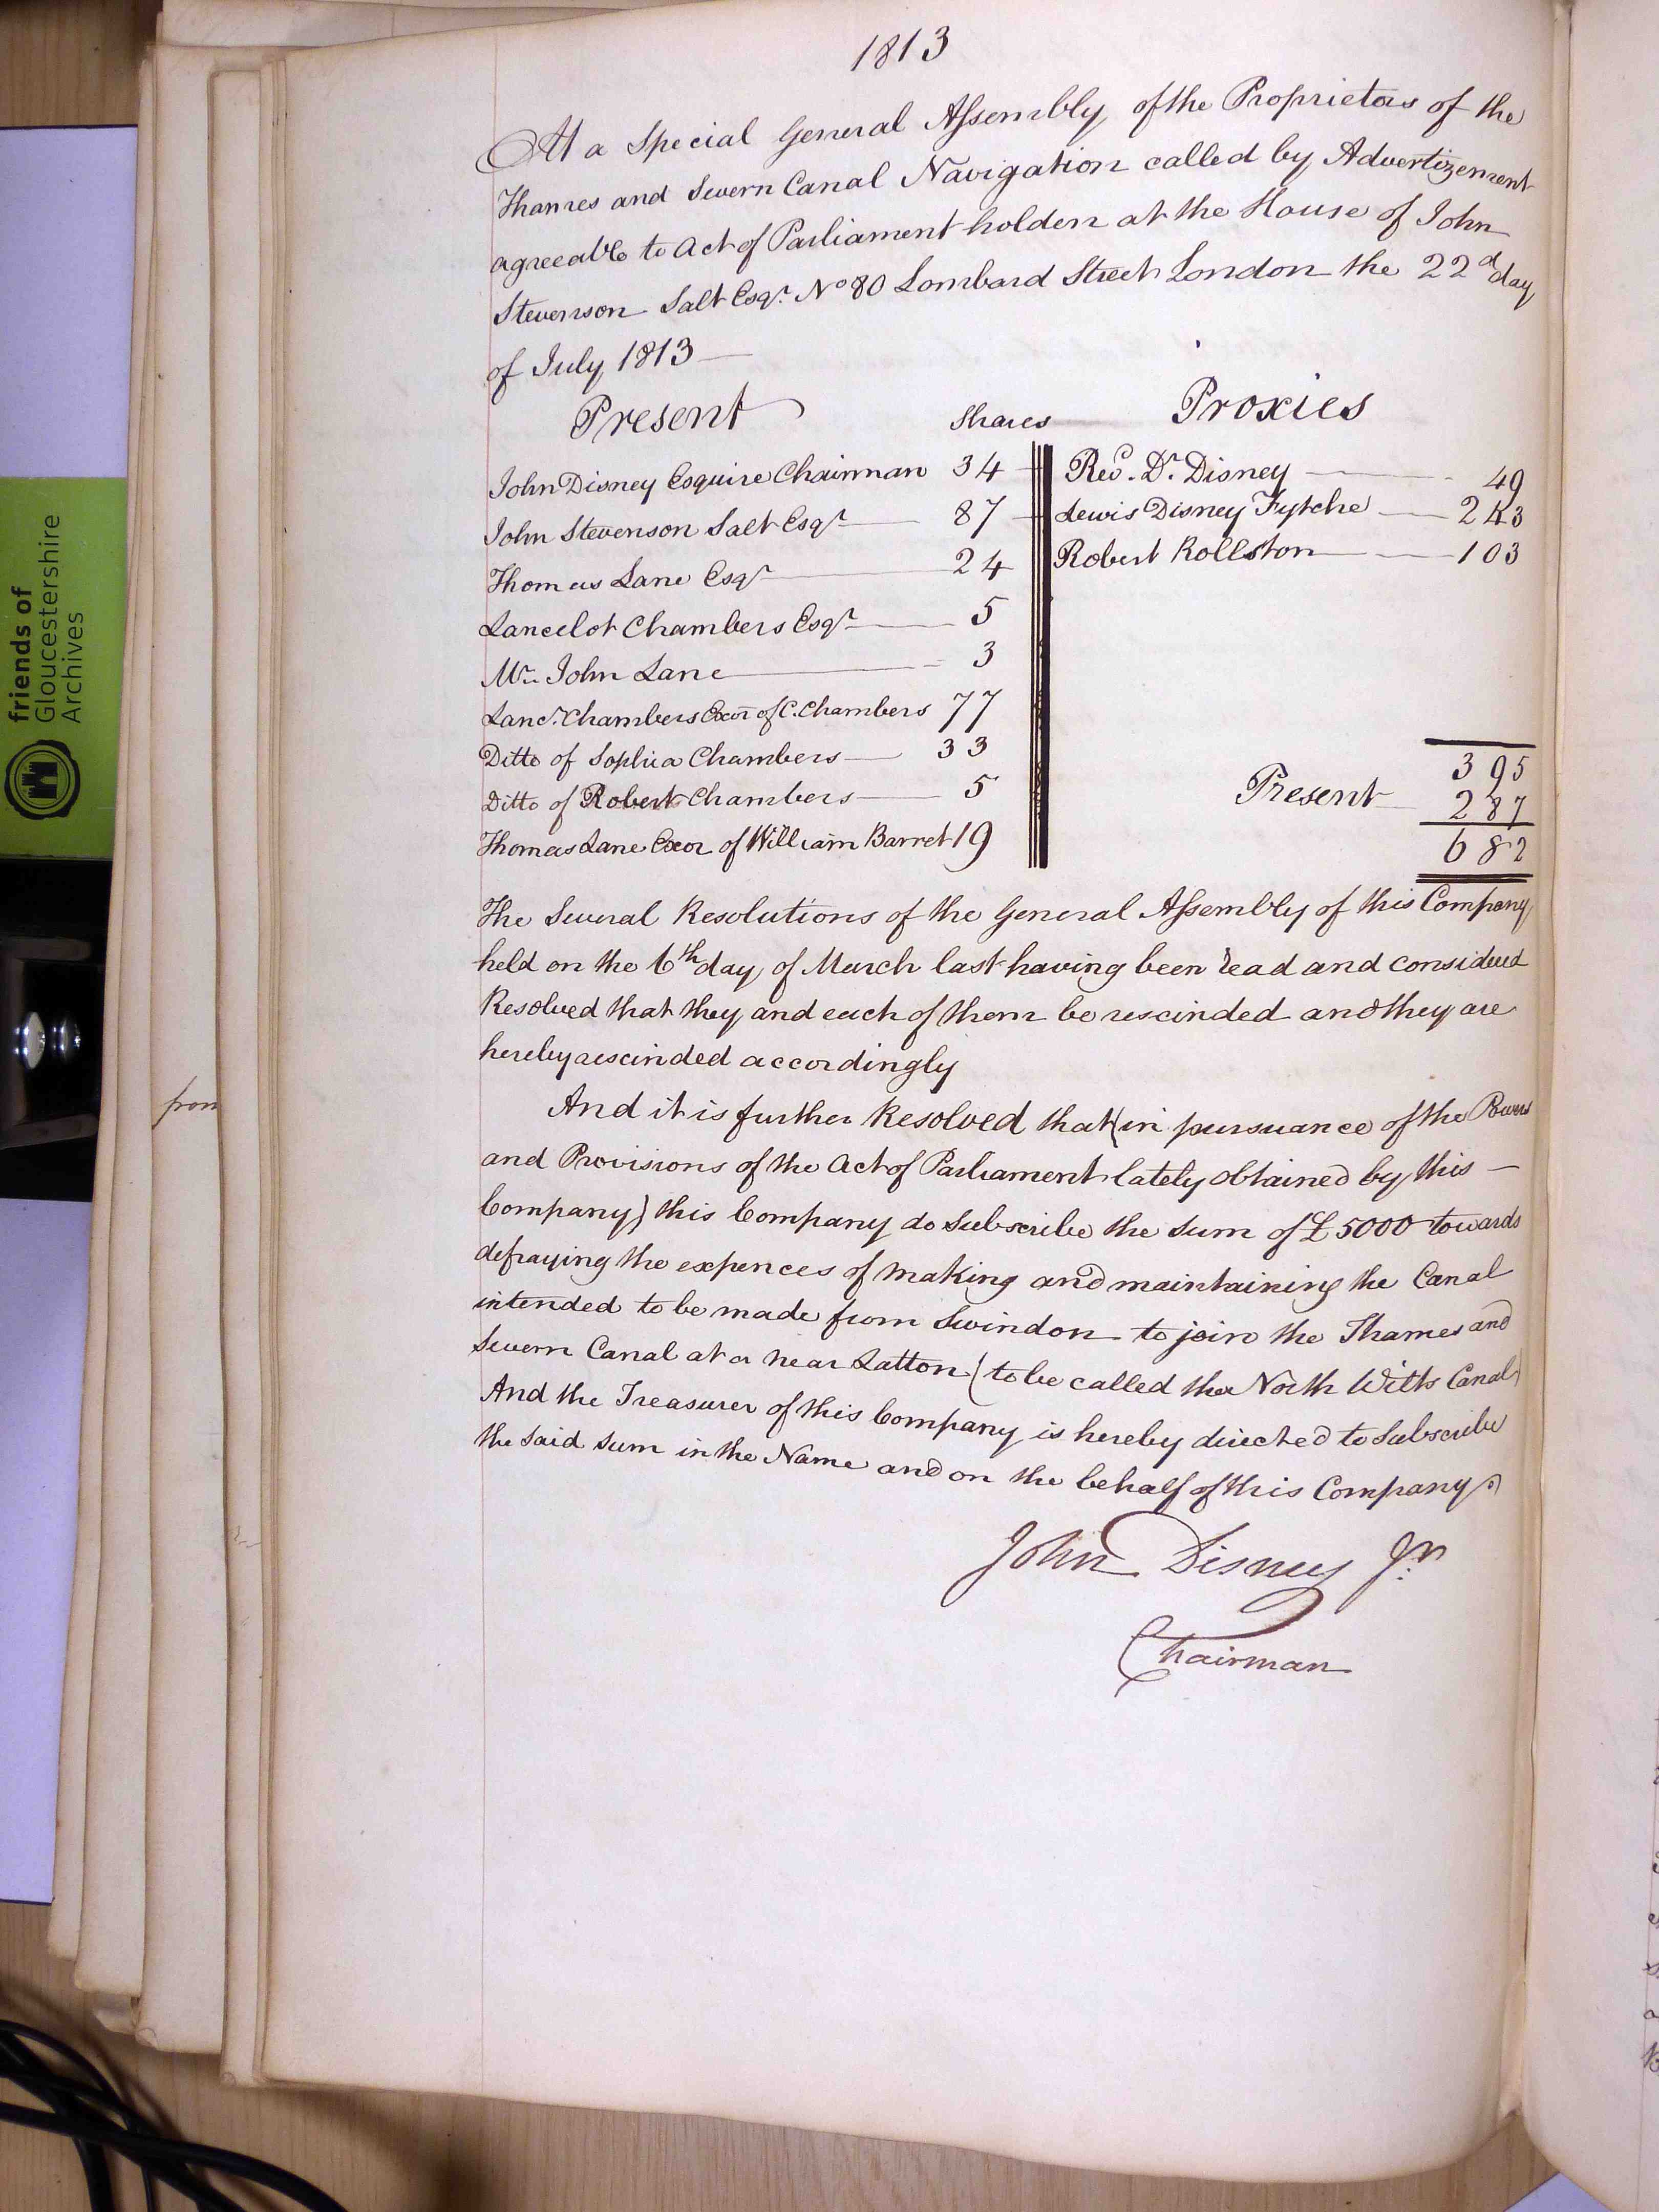 1813
At a Special General Assembly of the Proprietors of the
Thames and Severn Canal Navigation called by Advertizement
agreeable to Act of Parliament holden at the House of John
Stevenson Salt Esqr. No 80 Lombard Street London the 22d day
of July 1813
Present Shares Proxies
John Disney Esquire Chairman 34 Revd. Dr. Disney 49
John Stevenson Salt Esqr 87 Lewis Disney Fytche 243
Thomas Lane Esqr 24 Robert Rollston 103
Lancelot Chambers Esqr 5
Mr. John Lane 3
Lanct. Chambers Exor of C. Chambers 77
Ditto of Sophia Chambers 33
395
Ditto of Robert Chambers 5 Present 287
Thomas Lane Exor of William Barret 19 682
The Several Resolutions of the General Assembly of this Company
held on the 6th day of March last having been read and considered
Resolved that they and each of them be rescinded and they are
hereby rescinded accordingly
And it is further Resolved that (in pursuance of the Powers
and Provisions of the Act of Parliament lately obtained by this
Company) this Company do Subscribe the Sum of £5000 towards
defraying the expences of making and maintaining the Canal
intended to be made from Swindon to join the Thames and
Severn Canal at or near Latton (to be called the North Wilts Canal)
And the Treasurer of this Company is hereby directed to Subscribe
the said sum in the Name and on the behalf of this Company
John Disney Jr.
Chairman
friends of
Gloucestershire
Archives
from